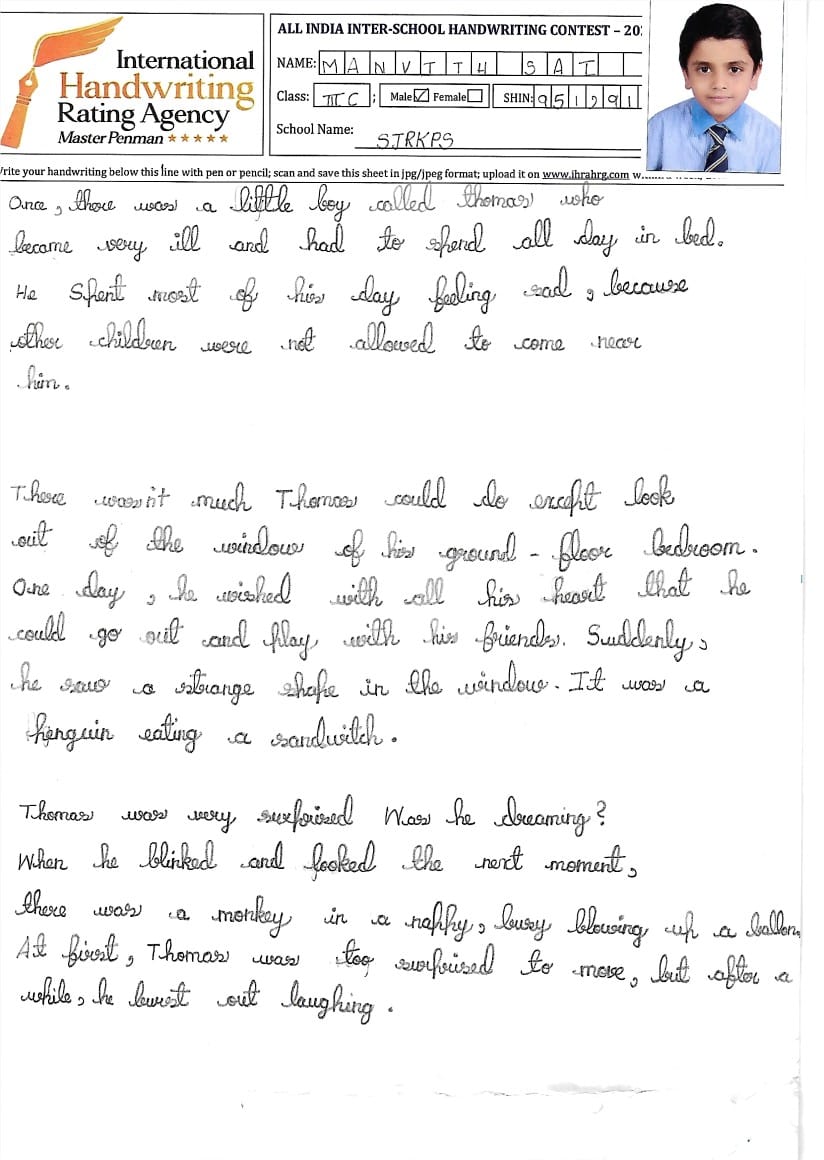 International
Handwriting
Rating Agency
Master Penman ★★★★★
ALL INDIA INTER-SCHOOL HANDWRITING CONTEST – 20
NAME: MANVITH SAI
Class: III C ; Male ☑ Female ☐ SHIN: 951291
School Name: SJRKPS
rite your handwriting below this line with pen or pencil; scan and save this sheet in jpg/jpeg format; upload it on www.ihrahrg.com
Once, there was a little boy called thomas who
became very ill and had to spend all day in bed.
He Spent most of his day feeling sad, because
other children were not allowed to come near
him.
There wasn't much Thomas could do except look
out of the window of his ground - floor bedroom.
One day, he wished with all his heart that he
could go out and play with his friends. Suddenly,
he saw a strange shape in the window. It was a
penguin eating a sandwitch.
Thomas was very surprised Was he dreaming?
When he blinked and looked the next moment,
there was a monkey in a nappy, busy blowing up a ballon.
At first, Thomas was too surprised to move, but after a
while, he burst out laughing.